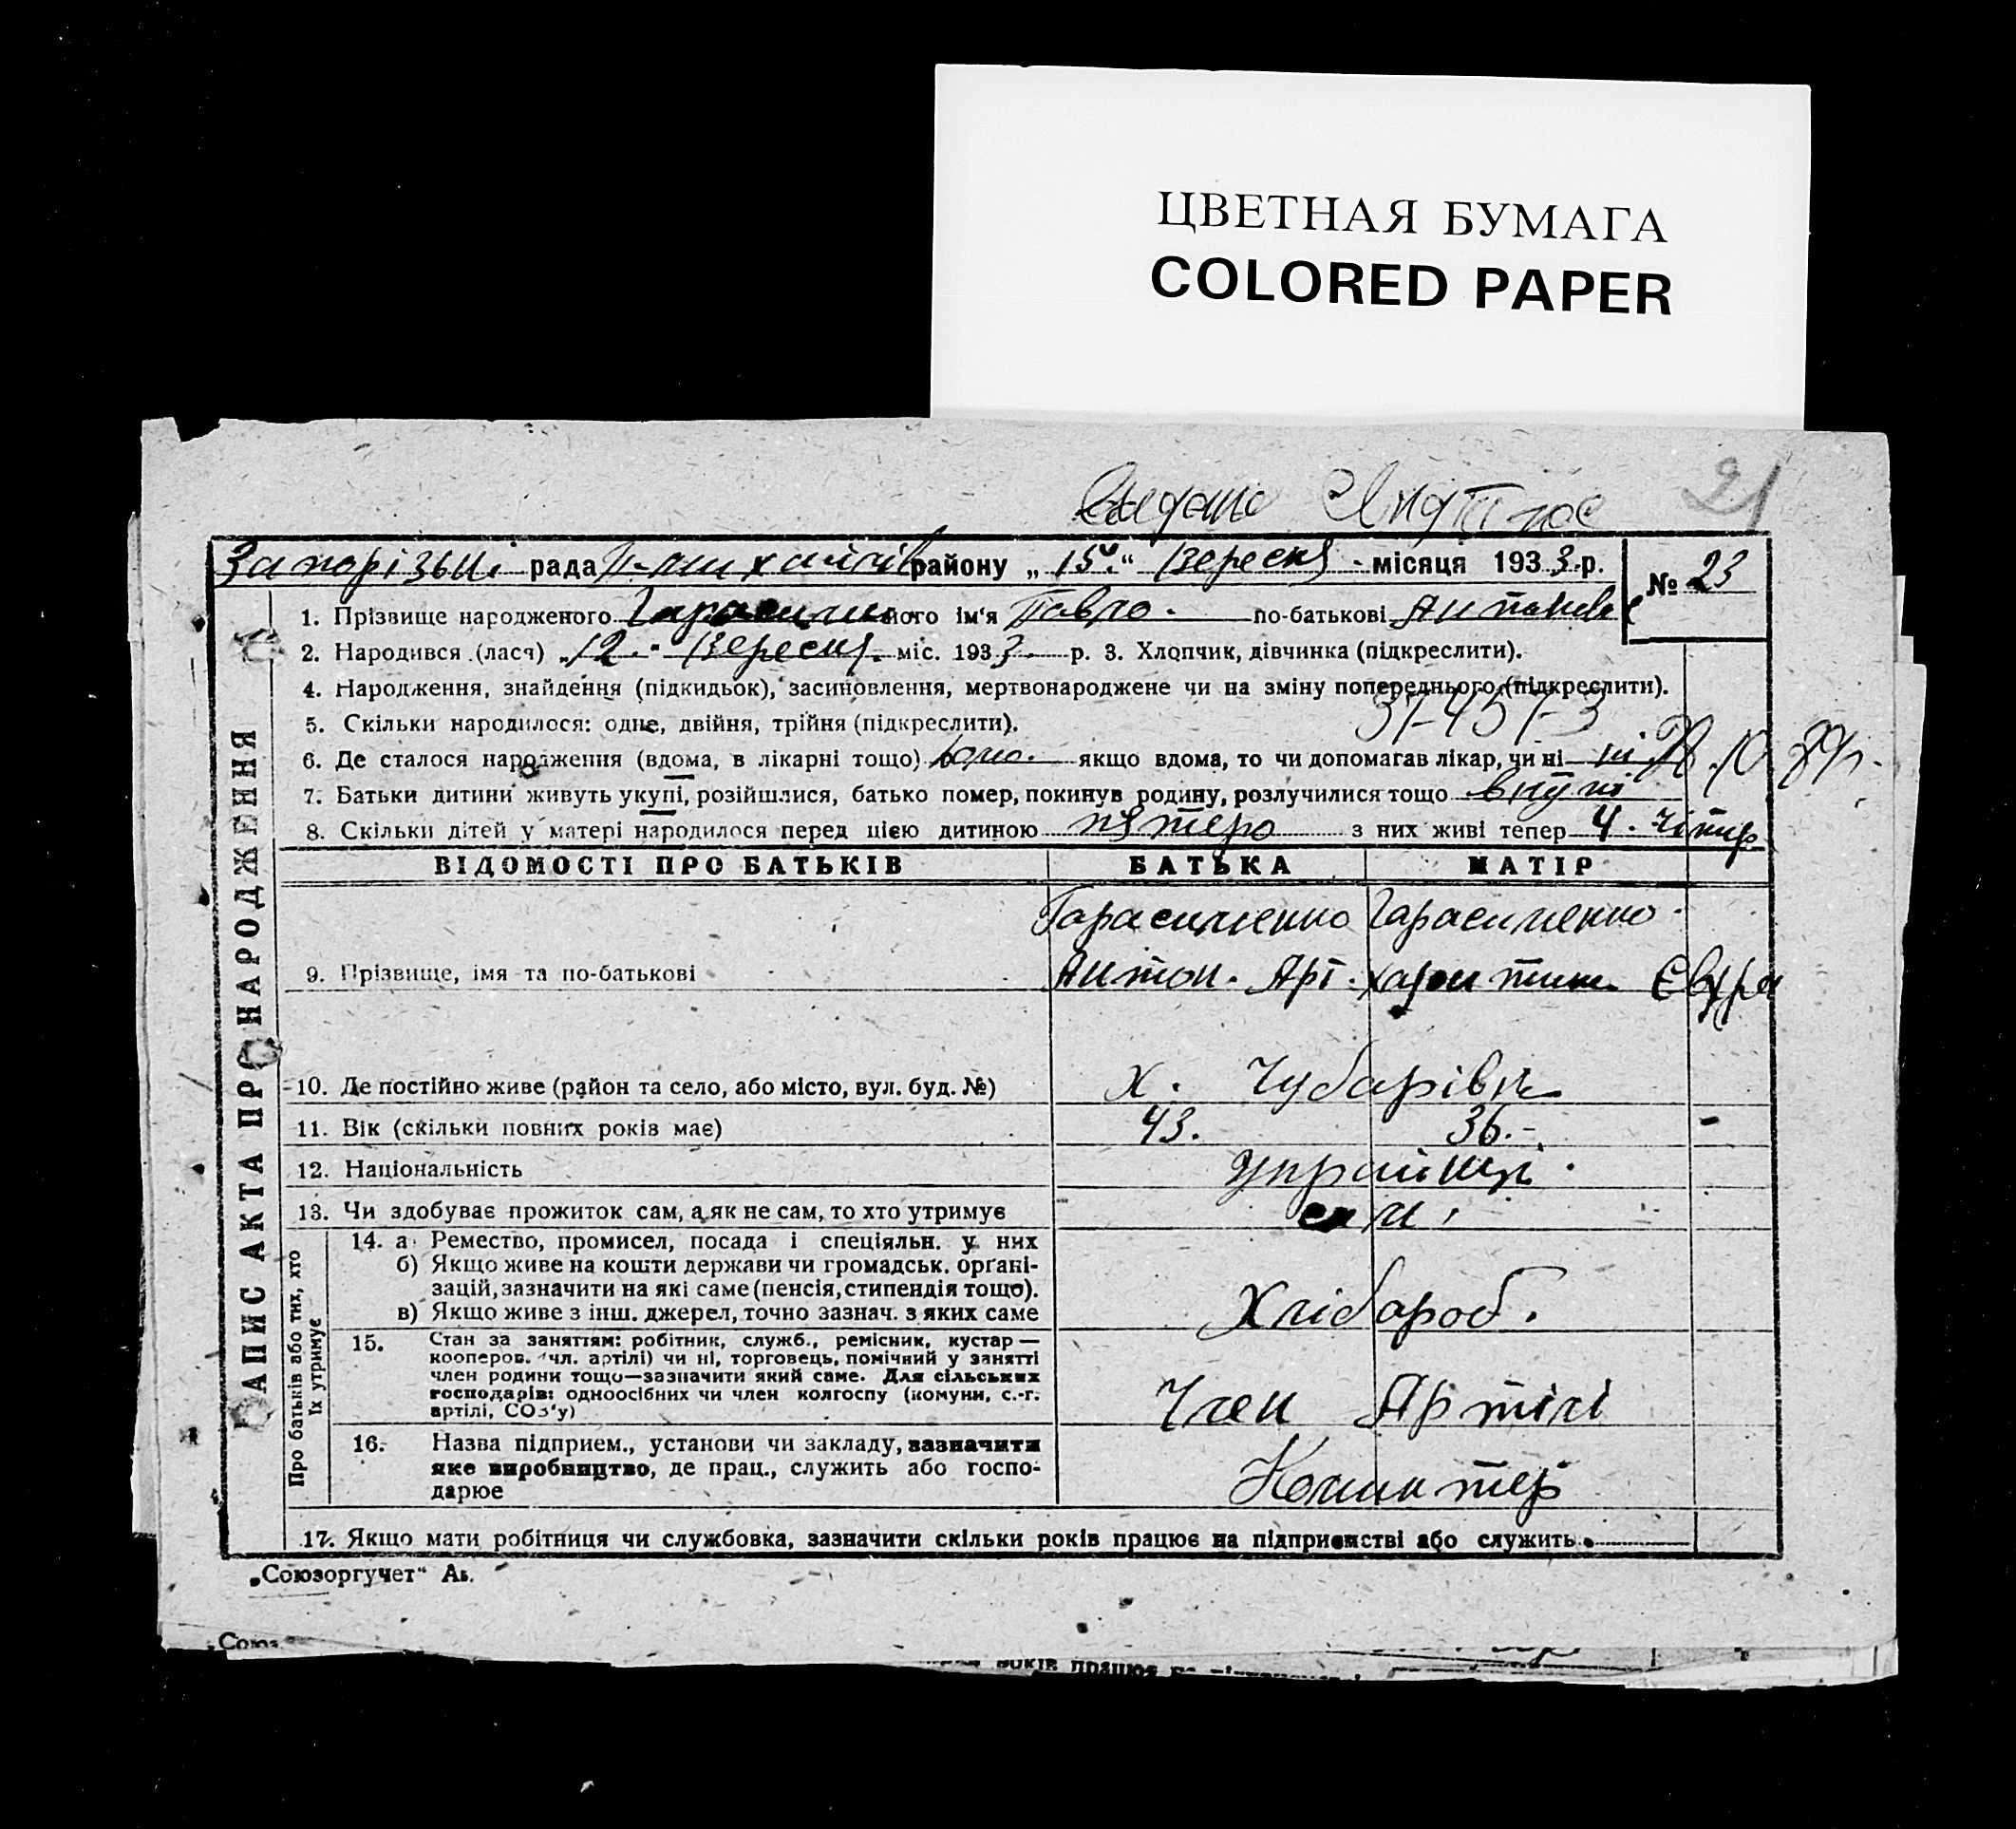 ЦВЕТНАЯ БУМАГА
COLORED PAPER
21
рада району „15“ Вересня місяця 1933 р. № 23
ЗАПИС АКТА ПРО НАРОДЖЕННЯ
1. Прізвище народженого його ім'я Павло. по-батькові
2. Народився (лася) „12.“ Вересня. міс. 1933. р. 3. Хлопчик, дівчинка (підкреслити).
4. Народження, знайдення (підкидьок), засиновлення, мертвонароджене чи на зміну попереднього (підкреслити).
5. Скільки народилося: одне, двійня, трійня (підкреслити).
6. Де сталося народження (вдома, в лікарні тощо) якщо вдома, то чи допомагав лікар, чи ні ні
7. Батьки дитини живуть укупі, розійшлися, батько помер, покинув родину, розлучилися тощо вкупі
8. Скільки дітей у матері народилося перед цією дитиною пятеро з них живі тепер 4.
ВІДОМОСТІ ПРО БАТЬКІВ БАТЬКА МАТІР
Гарасименко Гарасименко
9. Прізвище, імя та по-батькові Антон. Арт.
10. Де постійно живе (район та село, або місто, вул. буд. №) х. Чубарівка
11. Вік (скільки повних років має) 43. 36.
12. Національність Українці.
13. Чи здобуває прожиток сам, а як не сам, то хто утримує сам
Про батьків або тих, хто їх утримує
14. а Ремество, промисел, посада і спеціяльн. у них
б) Якщо живе на кошти держави чи громадськ. організацій, зазначити на які саме (пенсія, стипендія тощо).
в) Якщо живе з інш. джерел, точно зазнач. з яких саме
Хлібороб.
15. Стан за заняттям: робітник, служб., ремісник, кустар —
кооперов. (чл. артілі) чи ні, торговець, помічний у занятті
член родини тощо—зазначити який саме. Для сільських
господарів: одноосібних чи член колгоспу (комуни, с.-г.
артілі, СОЗ'у)
Член Артілі
16. Назва підприєм., установи чи закладу, зазначити
яке виробництво, де прац., служить або господарює
17. Якщо мати робітниця чи службовка, зазначити скільки років працює на підприємстві або служить
„Союзоргучет“